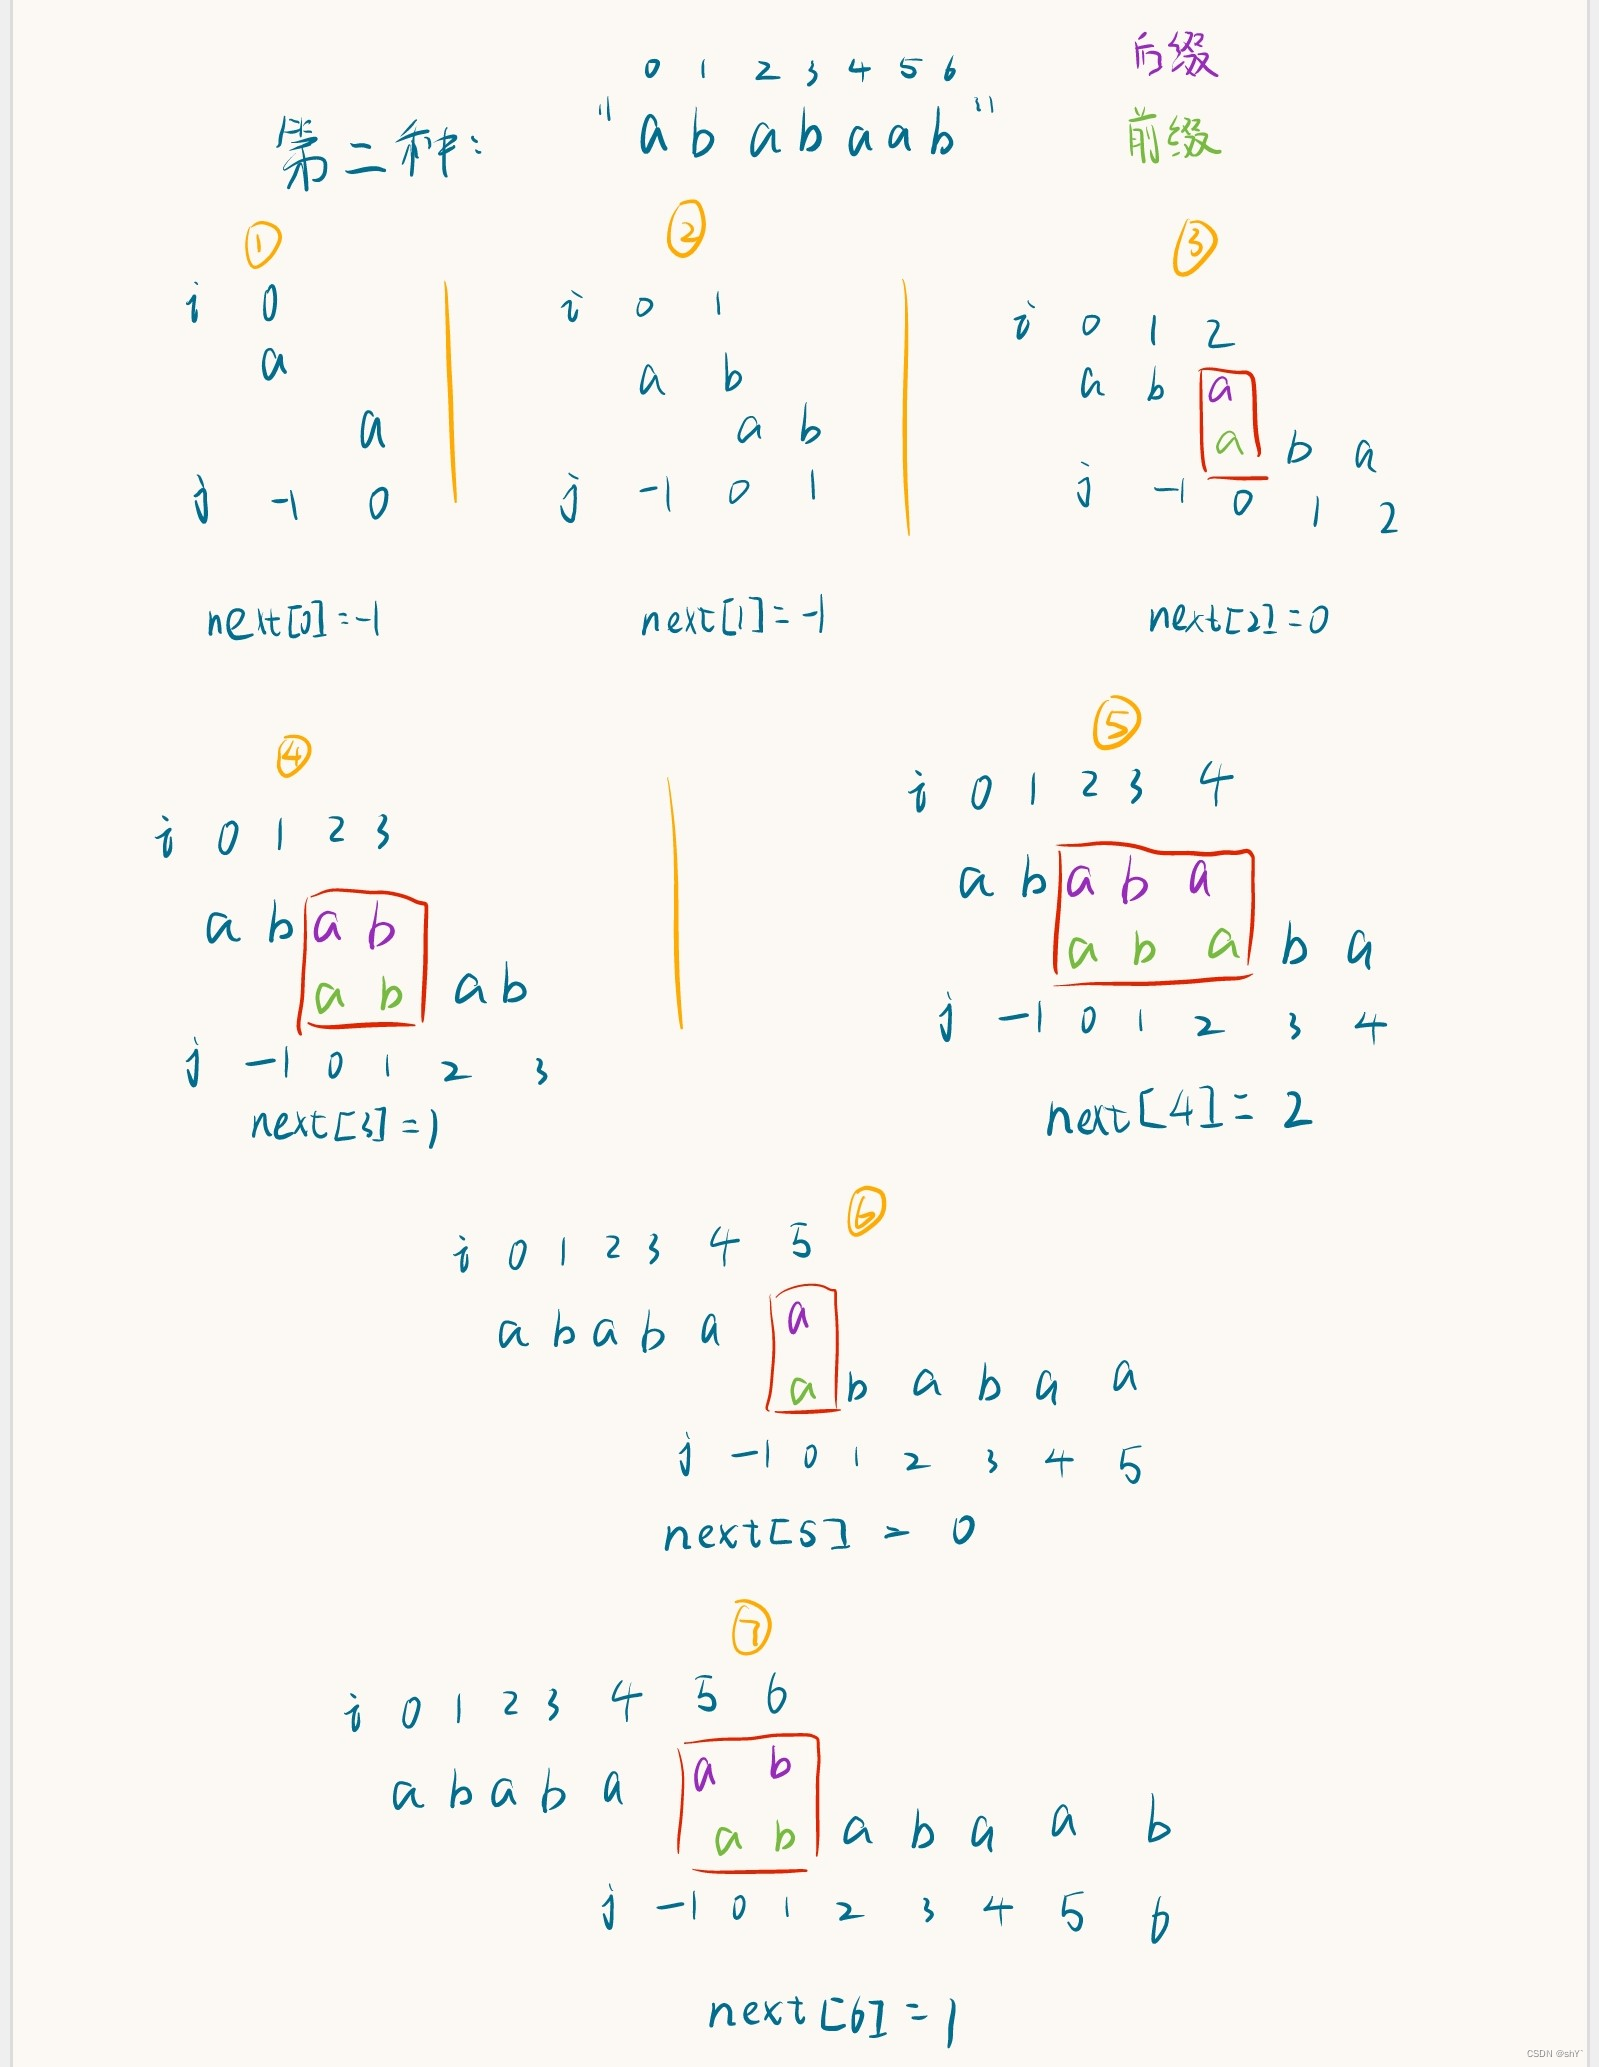 0 1 2 3 4 5 6 后缀
第二种: "a b a b a a b" 前缀
①
i 0
a
a
j -1 0
next[0]=-1
②
i 0 1
a b
a b
j -1 0 1
next[1]=-1
③
i 0 1 2
a b a
a b a
j -1 0 1 2
next[2]=0
④
i 0 1 2 3
a b a b
a b a b
j -1 0 1 2 3
next[3]=1
⑤
i 0 1 2 3 4
a b a b a
a b a b a
j -1 0 1 2 3 4
next[4]=2
⑥
i 0 1 2 3 4 5
a b a b a a
a b a b a a
j -1 0 1 2 3 4 5
next[5] = 0
⑦
i 0 1 2 3 4 5 6
a b a b a a b
a b a b a a b
j -1 0 1 2 3 4 5 6
next[6]=1
CSDN @shY`